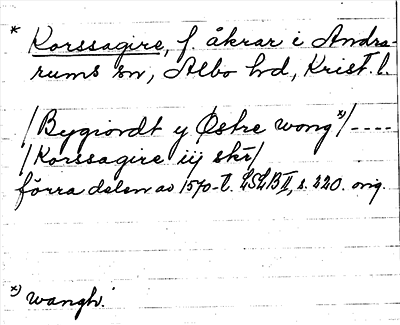 * Korssagire, f. åkrar i Andra-
rums sn, Albo hd, Krist. l.
/Bygiordt y Østre wong *)/ ----
/Korssagire iij skr/
förra delen av 1570-t. LSLB II, s. 220. orig.
*) wangh.